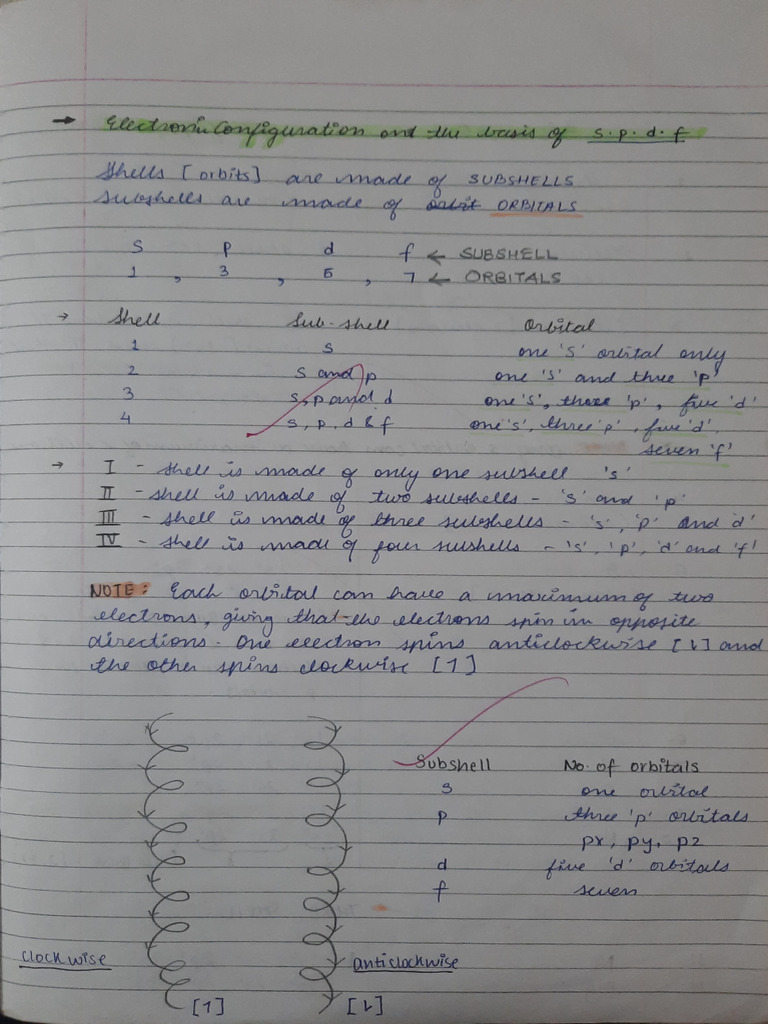 → Electronic Configuration and the basis of s.p.d.f
Shells [orbits] are made of SUBSHELLS
Subshells are made of orbit ORBITALS
S P d f ← SUBSHELL
1 , 3 , 5 , 7 ← ORBITALS
→ Shell Sub-shell Orbital
1 s one 's' orbital only
2 s and p one 's' and three 'p'
3 s, p and d one 's', three 'p', five 'd'
4 s, p, d & f one 's', three 'p', five 'd',
seven 'f'
→ I - shell is made of only one subshell 's'
II - shell is made of two subshells - 's' and 'p'
III - shell is made of three subshells - 's', 'p' and 'd'
IV - shell is made of four sushells - 's', 'p', 'd' and 'f'
NOTE: Each orbital can have a maximum of two
electrons, giving that the electrons spin in opposite
directions. One electron spins anticlockwise [⇂] and
the other spins clockwise [↿]
Subshell No. of orbitals
s one orbital
p three 'p' orbitals
px, py, pz
d five 'd' orbitals
f seven
clockwise anticlockwise
[↿] [⇂]